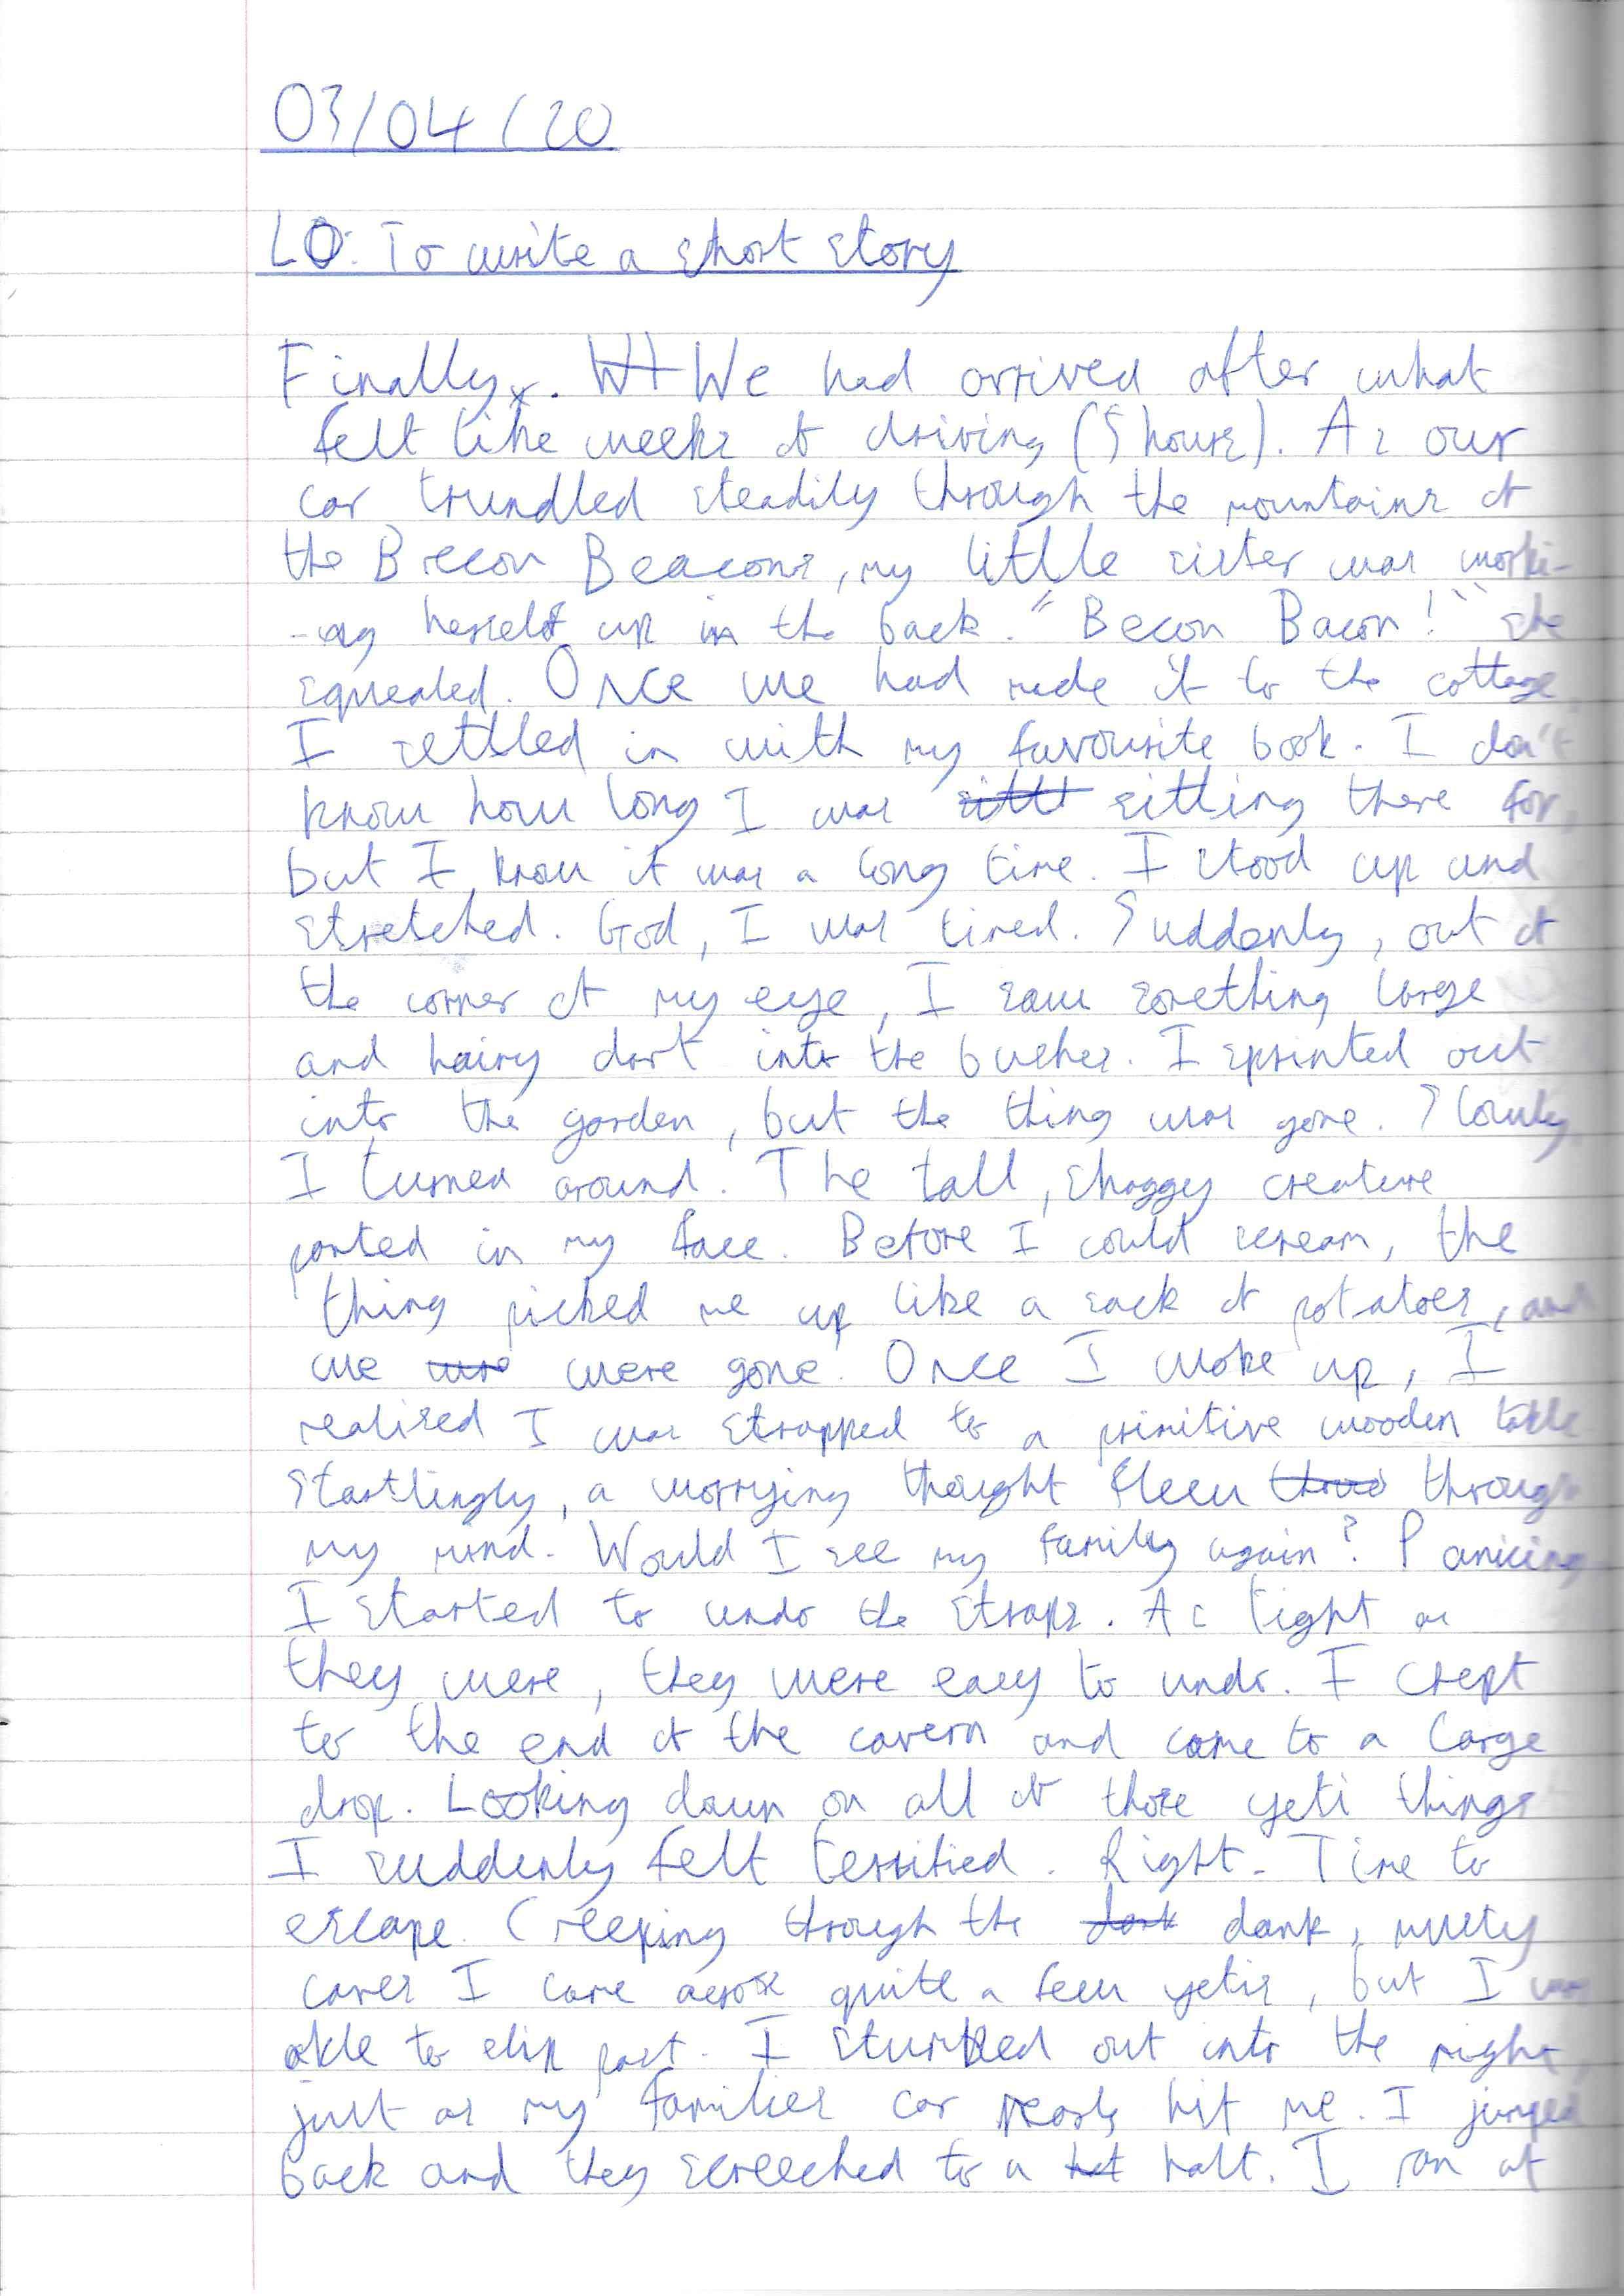 03/04/20
LO: To write a short story
Finally. We had arrived after what
felt like weeks of driving (5 hours). As our
car trundled steadily through the mountains of
the Brecon Beacons, my little sister was worki-
-ng herself up in the back. "Becon Bacon!" she
squealed. Once we had made it to the cottage
I settled in with my favourite book. I don't
know how long I was sitting there for,
but I know it was a long time. I stood up and
stretched. God, I was tired. Suddenly, out of
the corner of my eye, I saw something large
and hairy dart into the bushes. I sprinted out
into the garden, but the thing was gone. Slowly
I turned around. The tall, shaggy creature
panted in my face. Before I could scream, the
thing picked me up like a sack of potatoes, and
we were gone. Once I woke up, I
realised I was strapped to a primitive wooden table
Startlingly, a worrying thought flew through
my mind. Would I see my family again? Panicing
I started to undo the straps. As tight as
they were, they were easy to undo. I crept
to the end of the cavern and came to a large
drop. Looking down on all of those yeti things
I suddenly felt terrified. Right. Time to
escape. Creeping through the dank, musty
caves I came across quite a few yetis, but I was
able to slip past. I stumbled out into the night,
just as my families car nearly hit me. I jumped
back and they screeched to a halt. I ran at